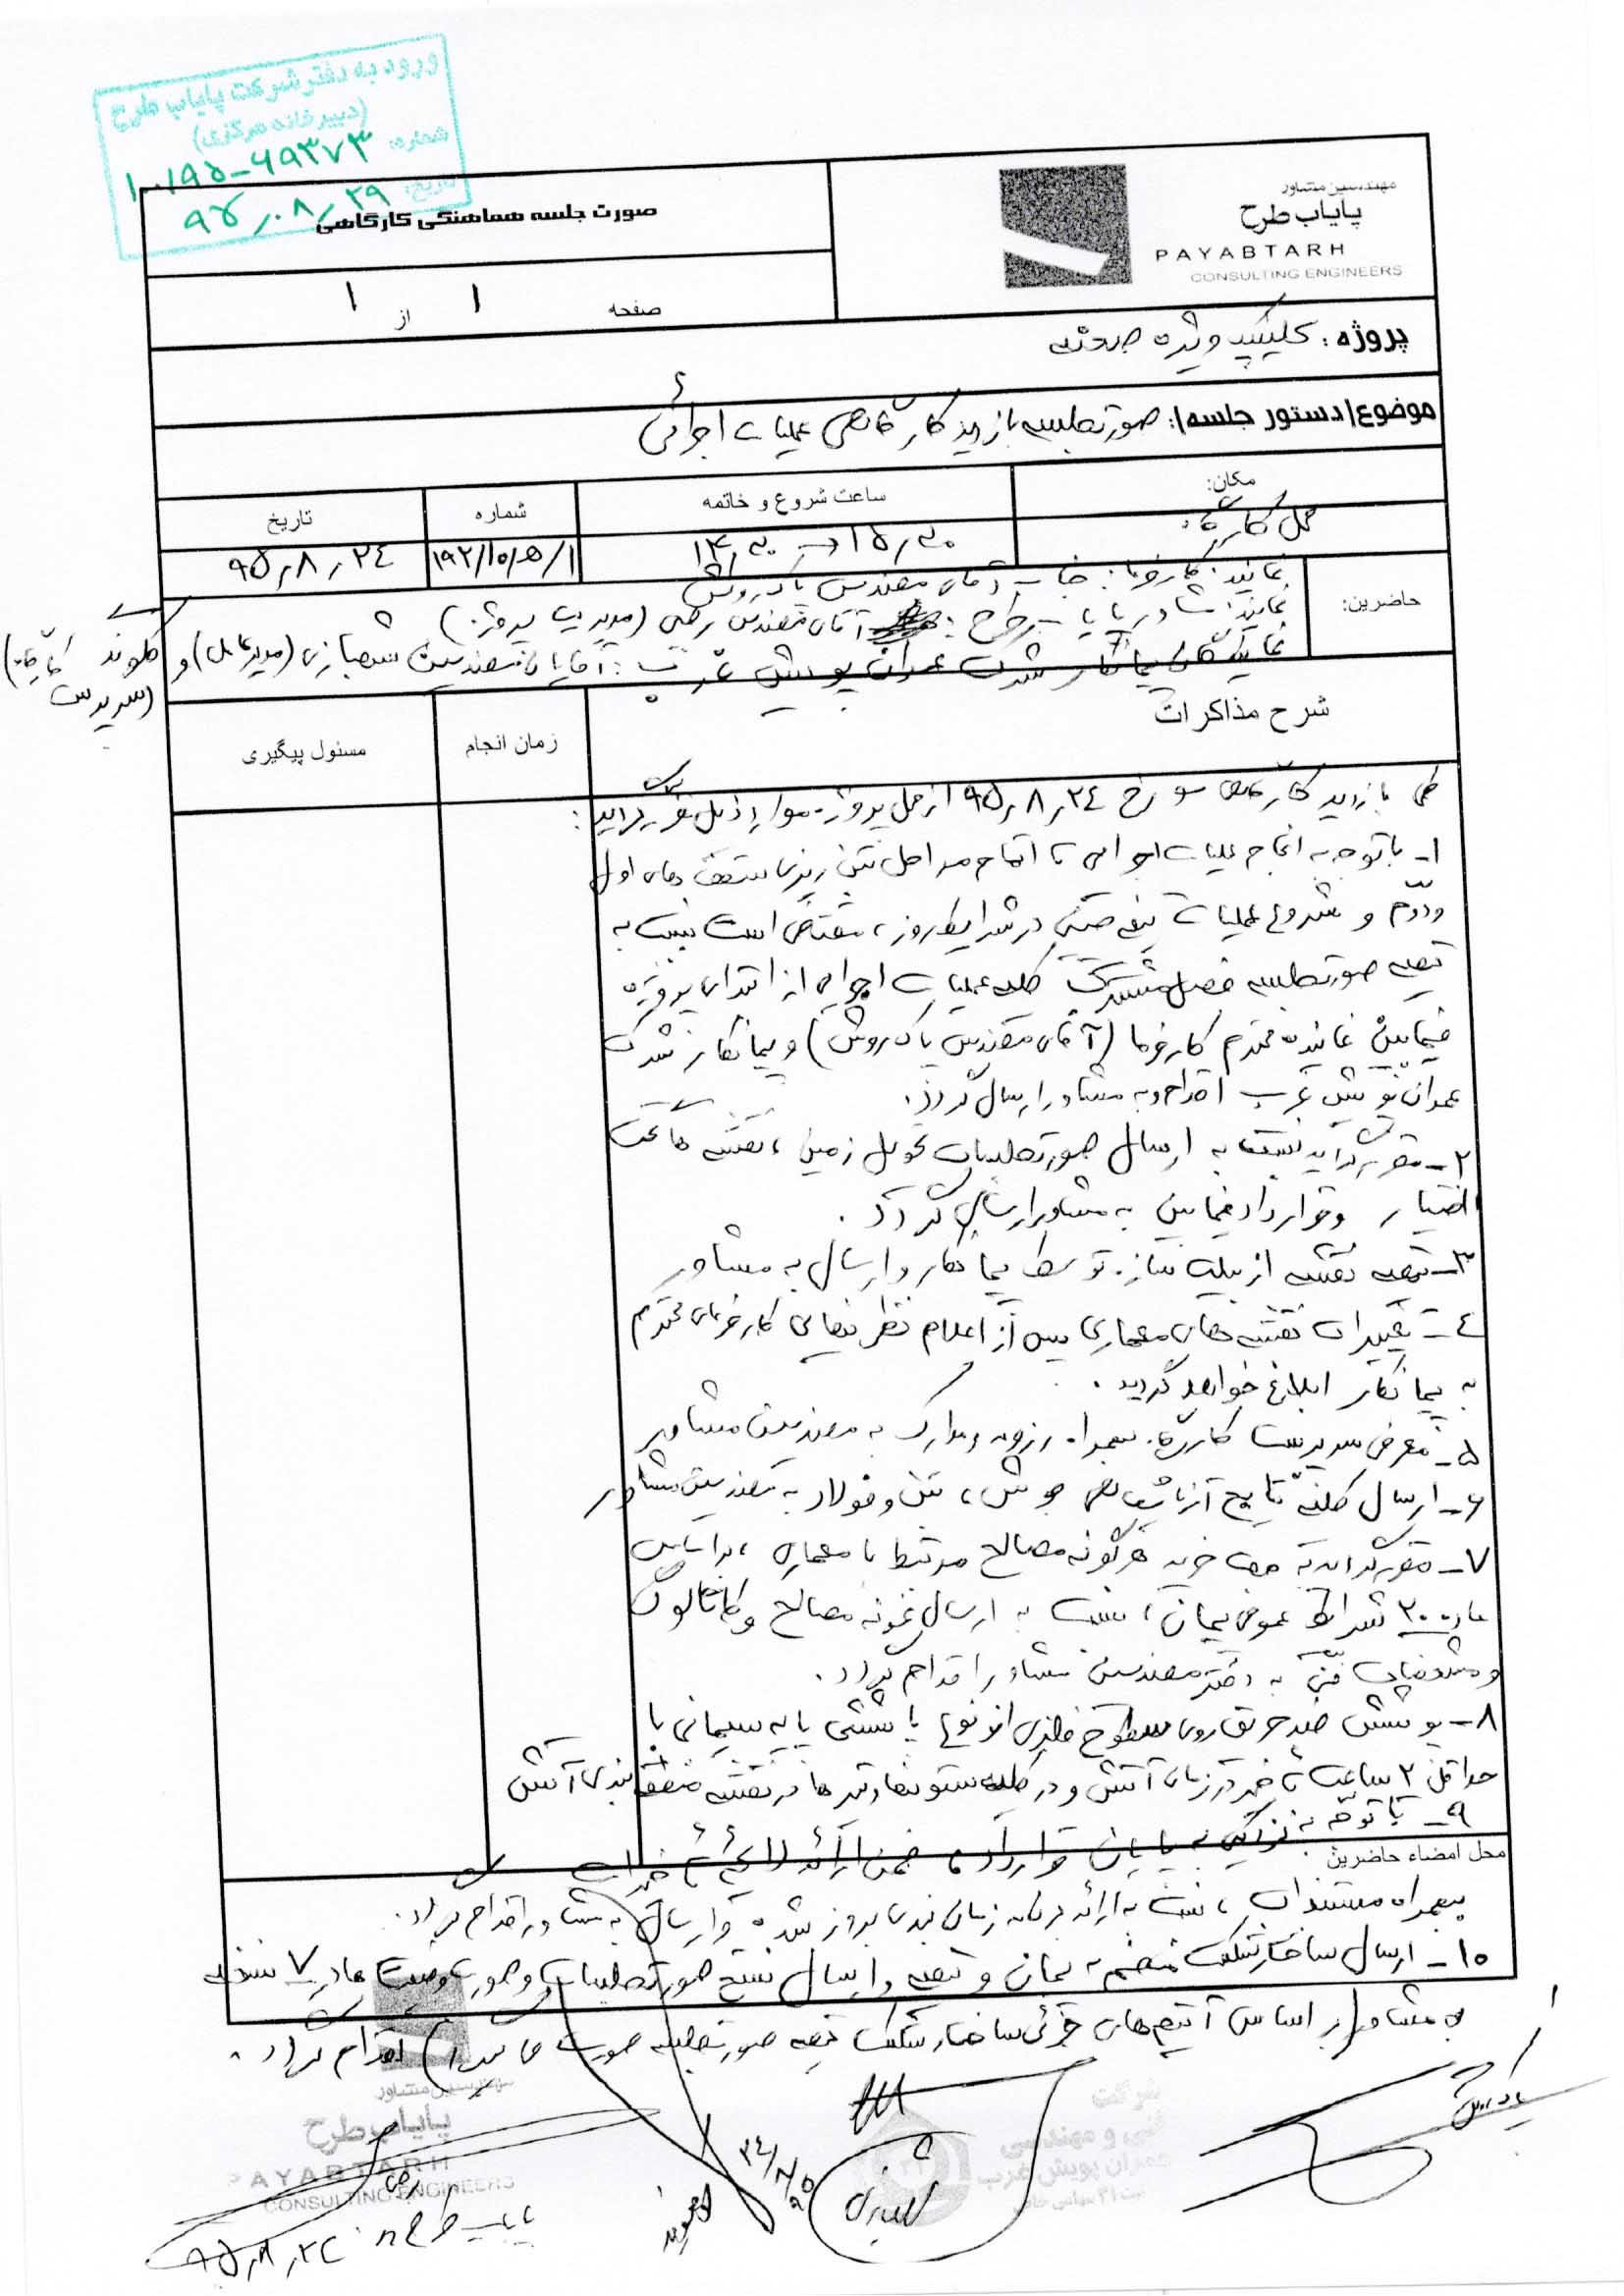 ورود به دفتر شرکت پایاب طرح
(دبیرخانه مرکزی)
شماره: ۱۰۱۹۵-۶۹۳۷۳
تاریخ: ۹۵,۰۸,۲۹
مهندسین مشاور
پایاب طرح
PAYABTARH
CONSULTING ENGINEERS
صورت جلسه هماهنگی کارگاهی
صفحه ۱ از ۱
پروژه: کلینیک ویژه صحنه
موضوع(دستور جلسه): صورتجلسه بازدید کارگاهی عملیات اجرائی
مکان: ساعت شروع و خاتمه شماره تاریخ
محل کارگاه ۱۵,۳۰ ۱۳,۳۰ ۱۹۲/۱۰/ص/۱ ۹۵,۸,۲۴
حاضرین:
نماینده کارفرما: جناب آقای مهندس پاکروش
نماینده مشاور پایاب طرح: آقای مهندس رضی (مدیریت پروژه)
نمایندگان پیمانکار شرکت عمران پویش غرب: آقایان مهندسین شهبازی (مدیرعامل) و کلوند (سرپرست کارگاه)
شرح مذاکرات زمان انجام مسئول پیگیری
طی بازدید کارگاهی مورخ ۹۵,۸,۲۴ از محل پروژه موارد ذیل مقرر گردید:
۱- با توجه به انجام عملیات اجرایی تا اتمام مراحل بتن ریزی سقف های اول
و دوم و شروع عملیات سفت در شرایط روز، مقتضی است نسبت به
تهیه صورتجلسه فصل مشترک کلیه عملیات اجرایی از ابتدای پروژه
فیمابین نماینده محترم کارفرما (آقای مهندس پاکروش) و پیمانکار شرکت
عمران پویش غرب اقدام و به مشاور ارسال گردد.
۲- مقرر گردید نسبت به ارسال صورتجلسات تحویل زمین، نقشه های تحت
اختیار و قرارداد فیمابین به مشاور ارسال گردد.
۳- تهیه نقشه ازبیلت سازه توسط پیمانکار و ارسال به مشاور
۴- تغییرات نقشه های معماری پس از اعلام نظر نهایی کارفرمای محترم
به پیمانکار ابلاغ خواهد گردید.
۵- معرفی سرپرست کارگاه بهمراه رزومه و مدارک به مهندسین مشاور
۶- ارسال کلیه نتایج آزمایشهای جوش، بتن و فولاد به مهندسین مشاور
۷- مقرر گردید جهت خرید هرگونه مصالح مرتبط با معماری، براساس
ماده ۲۰ شرایط عمومی پیمان، نسبت به ارسال نمونه مصالح و کاتالوگ
و مشخصات فنی به دفتر مهندسین مشاور اقدام گردد.
۸- پوشش ضد حریق روی سطوح فلزی از نوع پاششی پایه سیمانی با
حداقل ۲ ساعت تاخیر در زمان آتش و در کلیه ستونها و تیرها در نقشه منطقه بندی آتش
۹- با توجه به نزدیکی به پایان قرارداد، ضمن ارائه لایحه تاخیرات
محل امضاء حاضرین
بهمراه مستندات، نسبت به ارائه برنامه زمان بندی بروز شده و ارسال به مشاور اقدام گردد.
۱۰- ارسال ساختار شکست منضم به پیمان و تهیه و ارسال نسخ صورتجلسات و صورت وضعیت ها در ۷ نسخه
به مشاور (بر اساس آیتم های جزئی ساختار شکست تهیه صورتجلسه صورت می گیرد) اقدام گردد.
پاکروش
شهبازی
۹۵/۸/۲۴
شرکت
فنی و مهندسی
عمران پویش غرب
مهندسین مشاور
پایاب طرح
PAYABTARH
CONSULTING ENGINEERS
رضی
پایاب طرح
۹۵,۸,۲۴